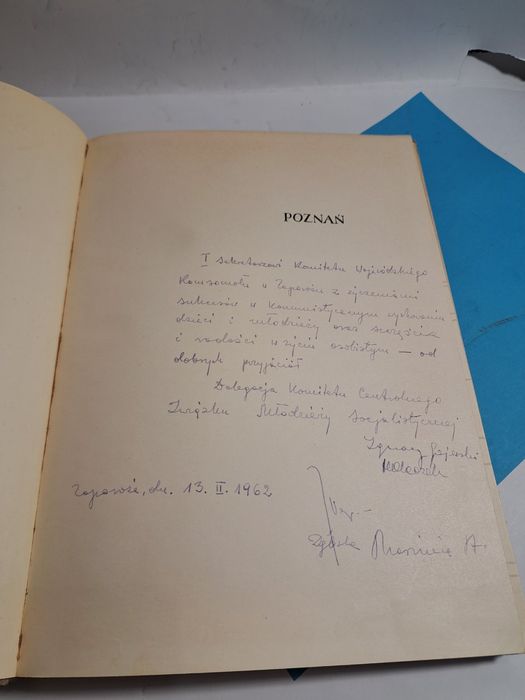 POZNAŃ
I Sekretarzowi Komitetu Wojewódzkiego
Komsomołu w Zaporożu z życzeniami
sukcesów w komunistycznym wychowaniu
dzieci i młodzieży oraz szczęścia
i radości w życiu osobistym — od
dobrych przyjaciół
Delegacja Komitetu Centralnego
Związku Młodzieży Socjalistycznej
Ignacy
Zaporoże, dn. 13. II. 1962